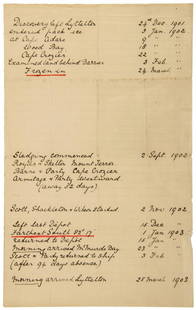 Discovery left Lyttelton 24th Dec 1901
entered pack ice 3 Jan. 1902
at Cape Adare 9 "
Wood Bay 18 "
Cape Crozier 22 "
Examined land behind Barrier 3 Feb
Frozen in 24 March
Sledging commenced 2 Sept. 1902
Royds & Skelton Mount Terror
Barne & Party Cape Crozier
Armitage & Party Westward
(away 52 days)
Scott, Shackleton & Wilson started 2 Nov 1902
Left last Depot 15 Dec "
Farthest South 82° 17 1 Jan 1903
returned to Depot 15 "
Morning arrived McMurdo Bay 23 "
Scott & Party returned to Ship 3 Feb
(after 94 days absence)
Morning arrived Lyttelton 25 March 1903